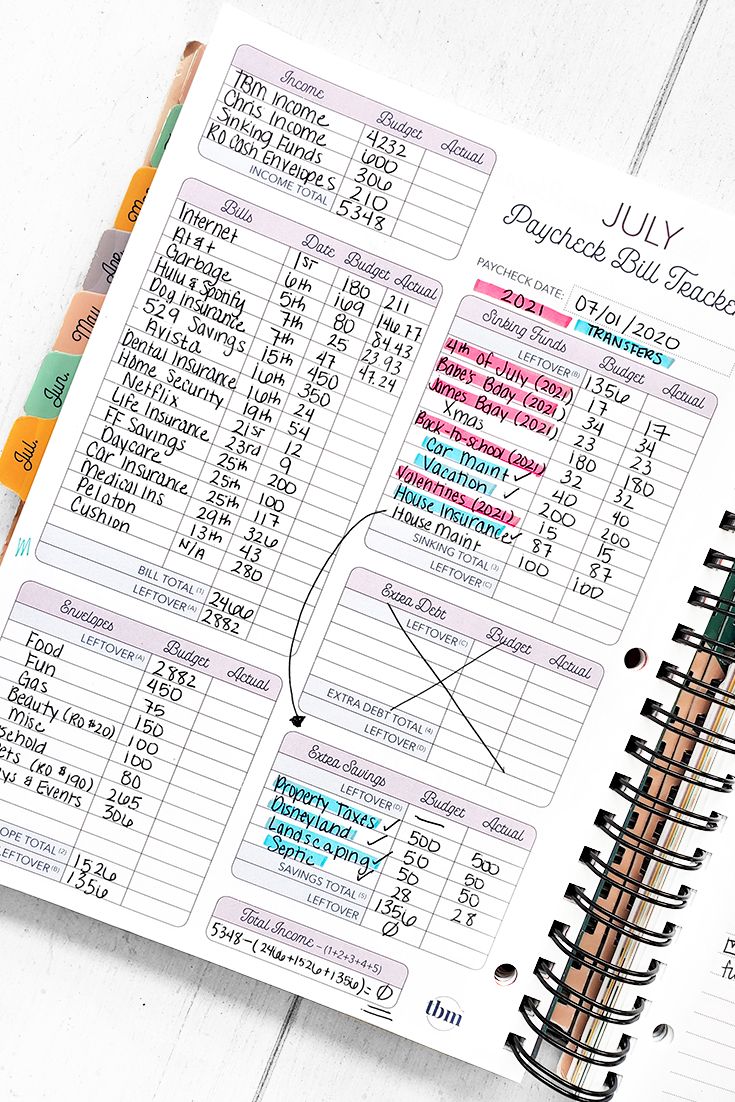 Jun.
May
Jul.
Income Budget Actual
TBM Income 4232
Chris Income 600
Sinking Funds 306
RO Cash Envelopes 210
INCOME TOTAL 5348
Bills Date Budget Actual
Internet 1st 180 211
At&t 6th 169 146.77
Garbage 5th 80 84.43
Hulu & Spotify 7th 25 23.93
Dog Insurance 7th 47 47.24
529 Savings 15th 450
Avista 16th 350
Dental Insurance 16th 24
Home Security 19th 54
Netflix 21st 12
Life Insurance 23rd 9
FF Savings 25th 200
Daycare 25th 100
Car Insurance 25th 117
Medical Ins 29th 326
Peloton 13th 43
Cushion N/A 280
BILL TOTAL (1) 2466
LEFTOVER (A) 2882
Envelopes Budget Actual
LEFTOVER (A) 2882
Food 450
Fun 75
Gas 150
Beauty (RO $20) 100
misc 100
sehold 80
ets (RO $190) 265
ays & Events 306
OPE TOTAL (2) 1526
LEFTOVER (B) 1356
JULY
Paycheck Bill Tracke
PAYCHECK DATE: 07/01/2020
2021 TRANSFERS
Sinking Funds Budget Actual
LEFTOVER (B) 1356
4th of July (2021) 17 17
Babe's Bday (2021) 34 34
James Bday (2021) 23 23
Xmas 180 180
Back-to-school (2021) 32 32
Car Maint ✓ 40 40
Vacation ✓ 200 200
Valentines (2021) 15 15
House Insurance ✓ 87 87
House maint 100 100
SINKING TOTAL (3)
LEFTOVER (C)
Extra Debt Budget Actual
LEFTOVER (C)
EXTRA DEBT TOTAL (4)
LEFTOVER (D)
Extra Savings Budget Actual
LEFTOVER (D) —
Property Taxes ✓ 500 500
Disneyland ✓ 50 50
Landscaping ✓ 50 50
Septic ✓ 28 28
SAVINGS TOTAL (5) 1356
LEFTOVER Ø
Total Income - (1+2+3+4+5)
5348-(2466+1526+1356)= Ø
tbm